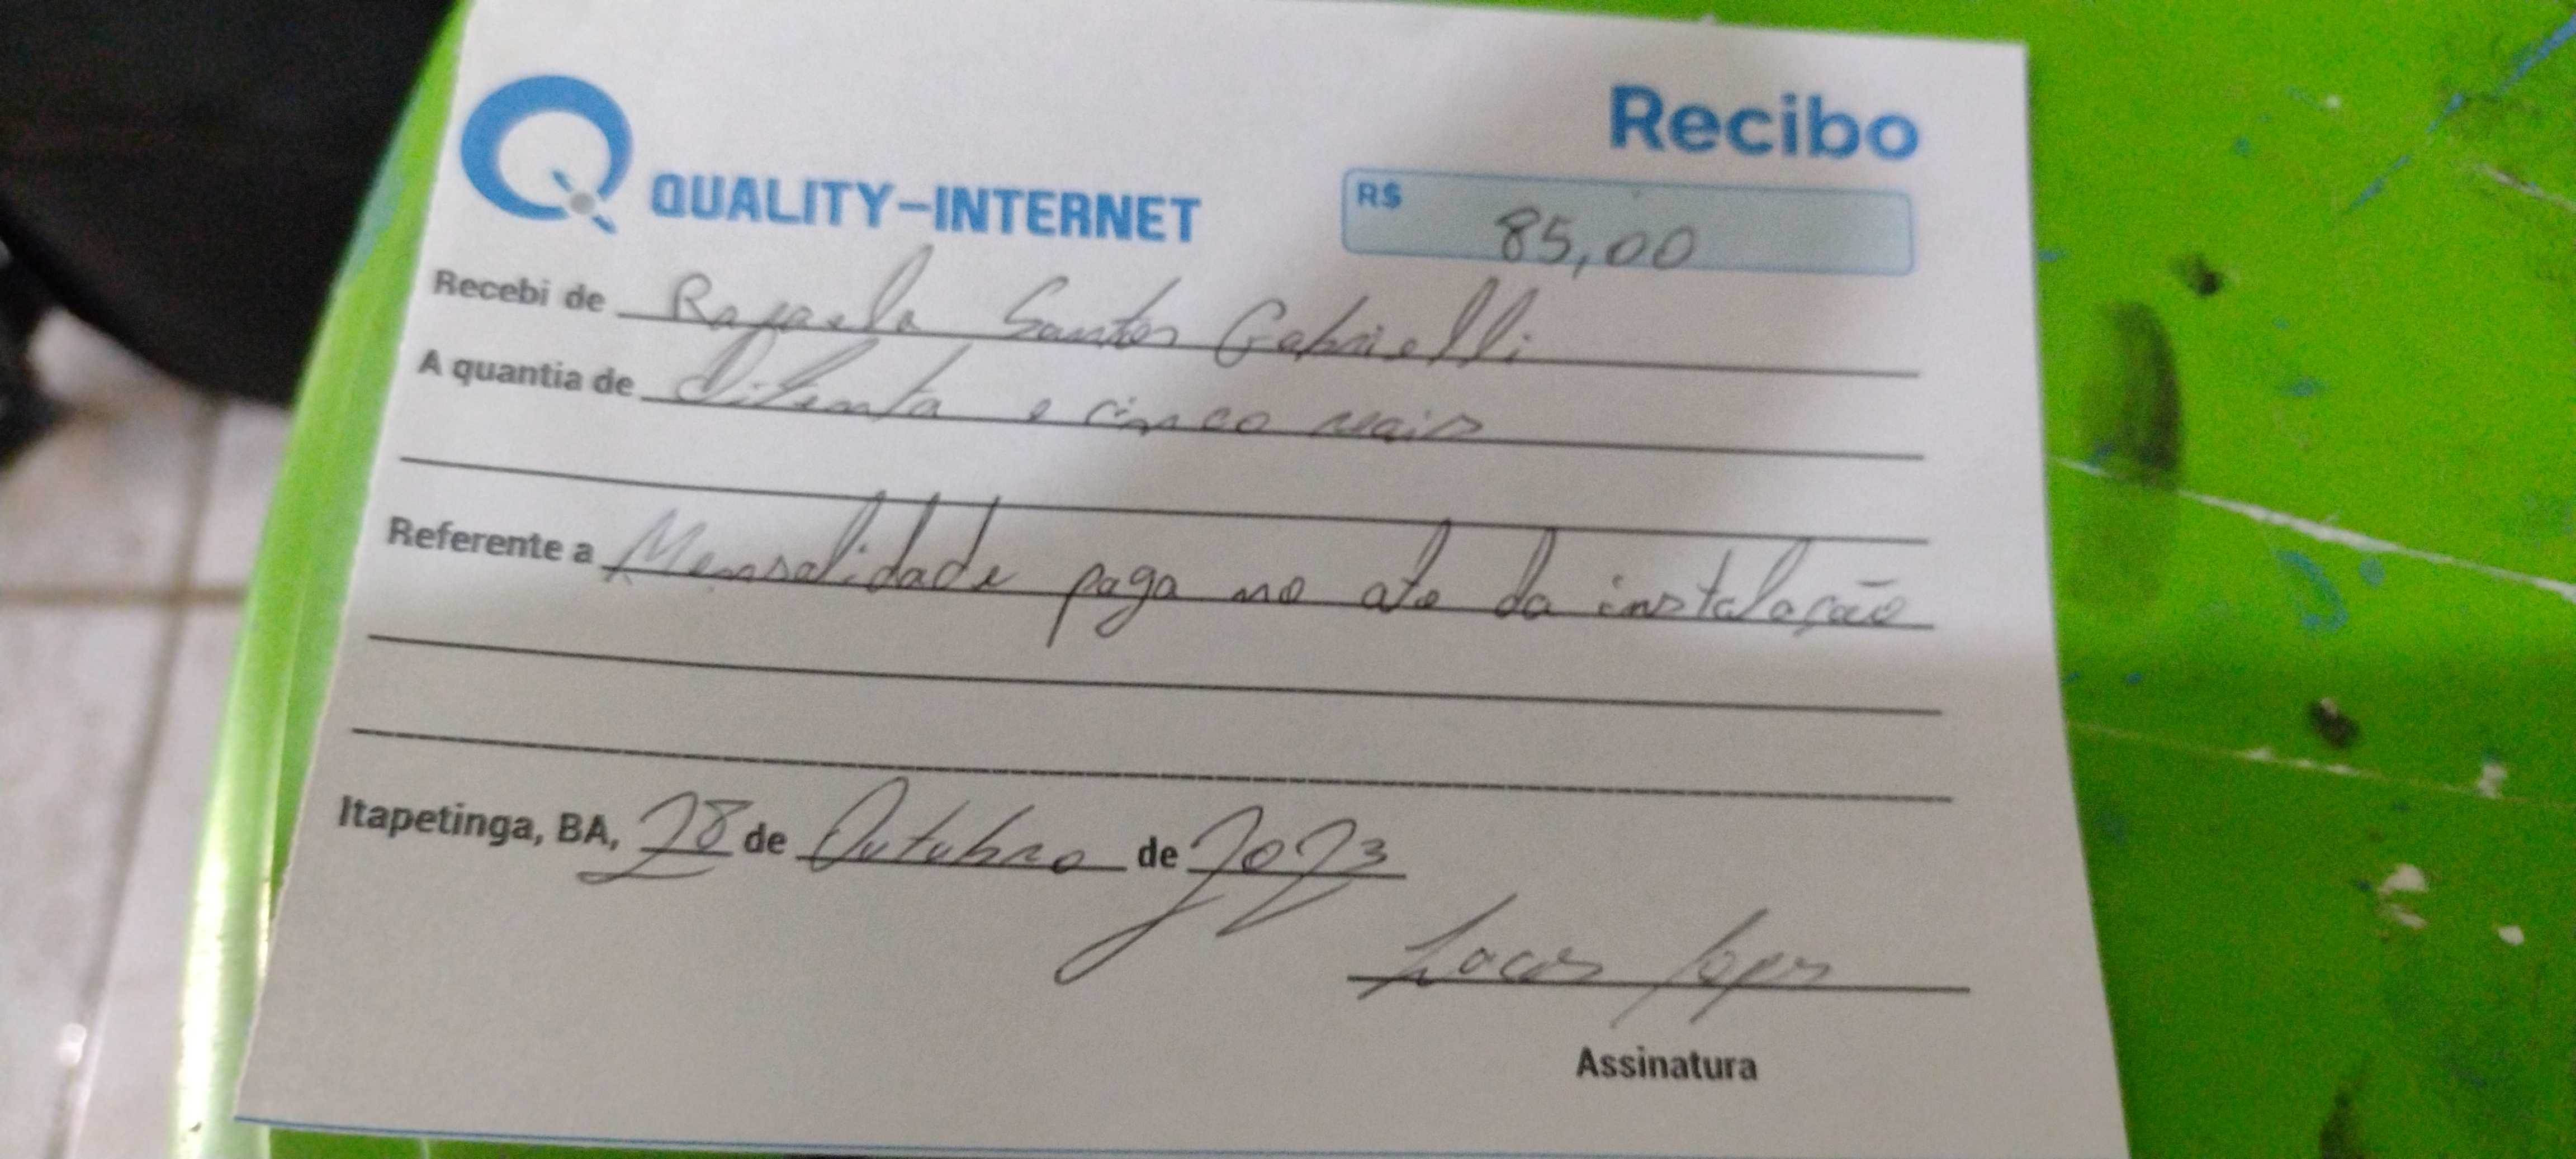 Recibo
QUALITY-INTERNET
R$ 85,00
Recebi de Rafaela Santos Gabrielli
A quantia de oitenta e cinco reais
Referente a Mensalidade paga no ato da instalação
Itapetinga, BA, 28 de Outubro de 2023
Lucas Lopes
Assinatura